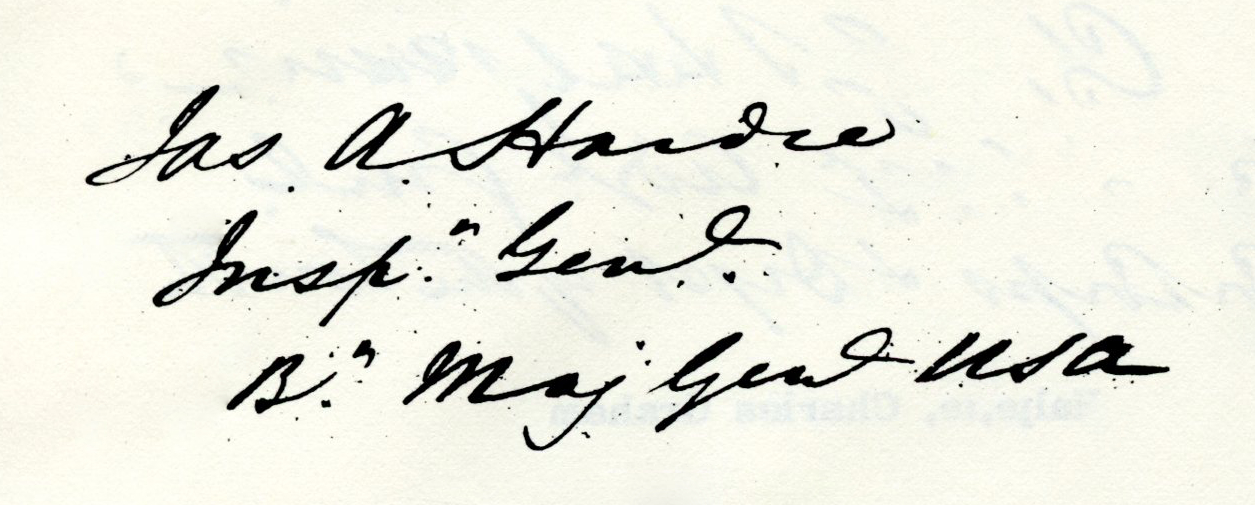 Jas. A. Hardie
Insp.r Genl.
B.t Maj Genl USA